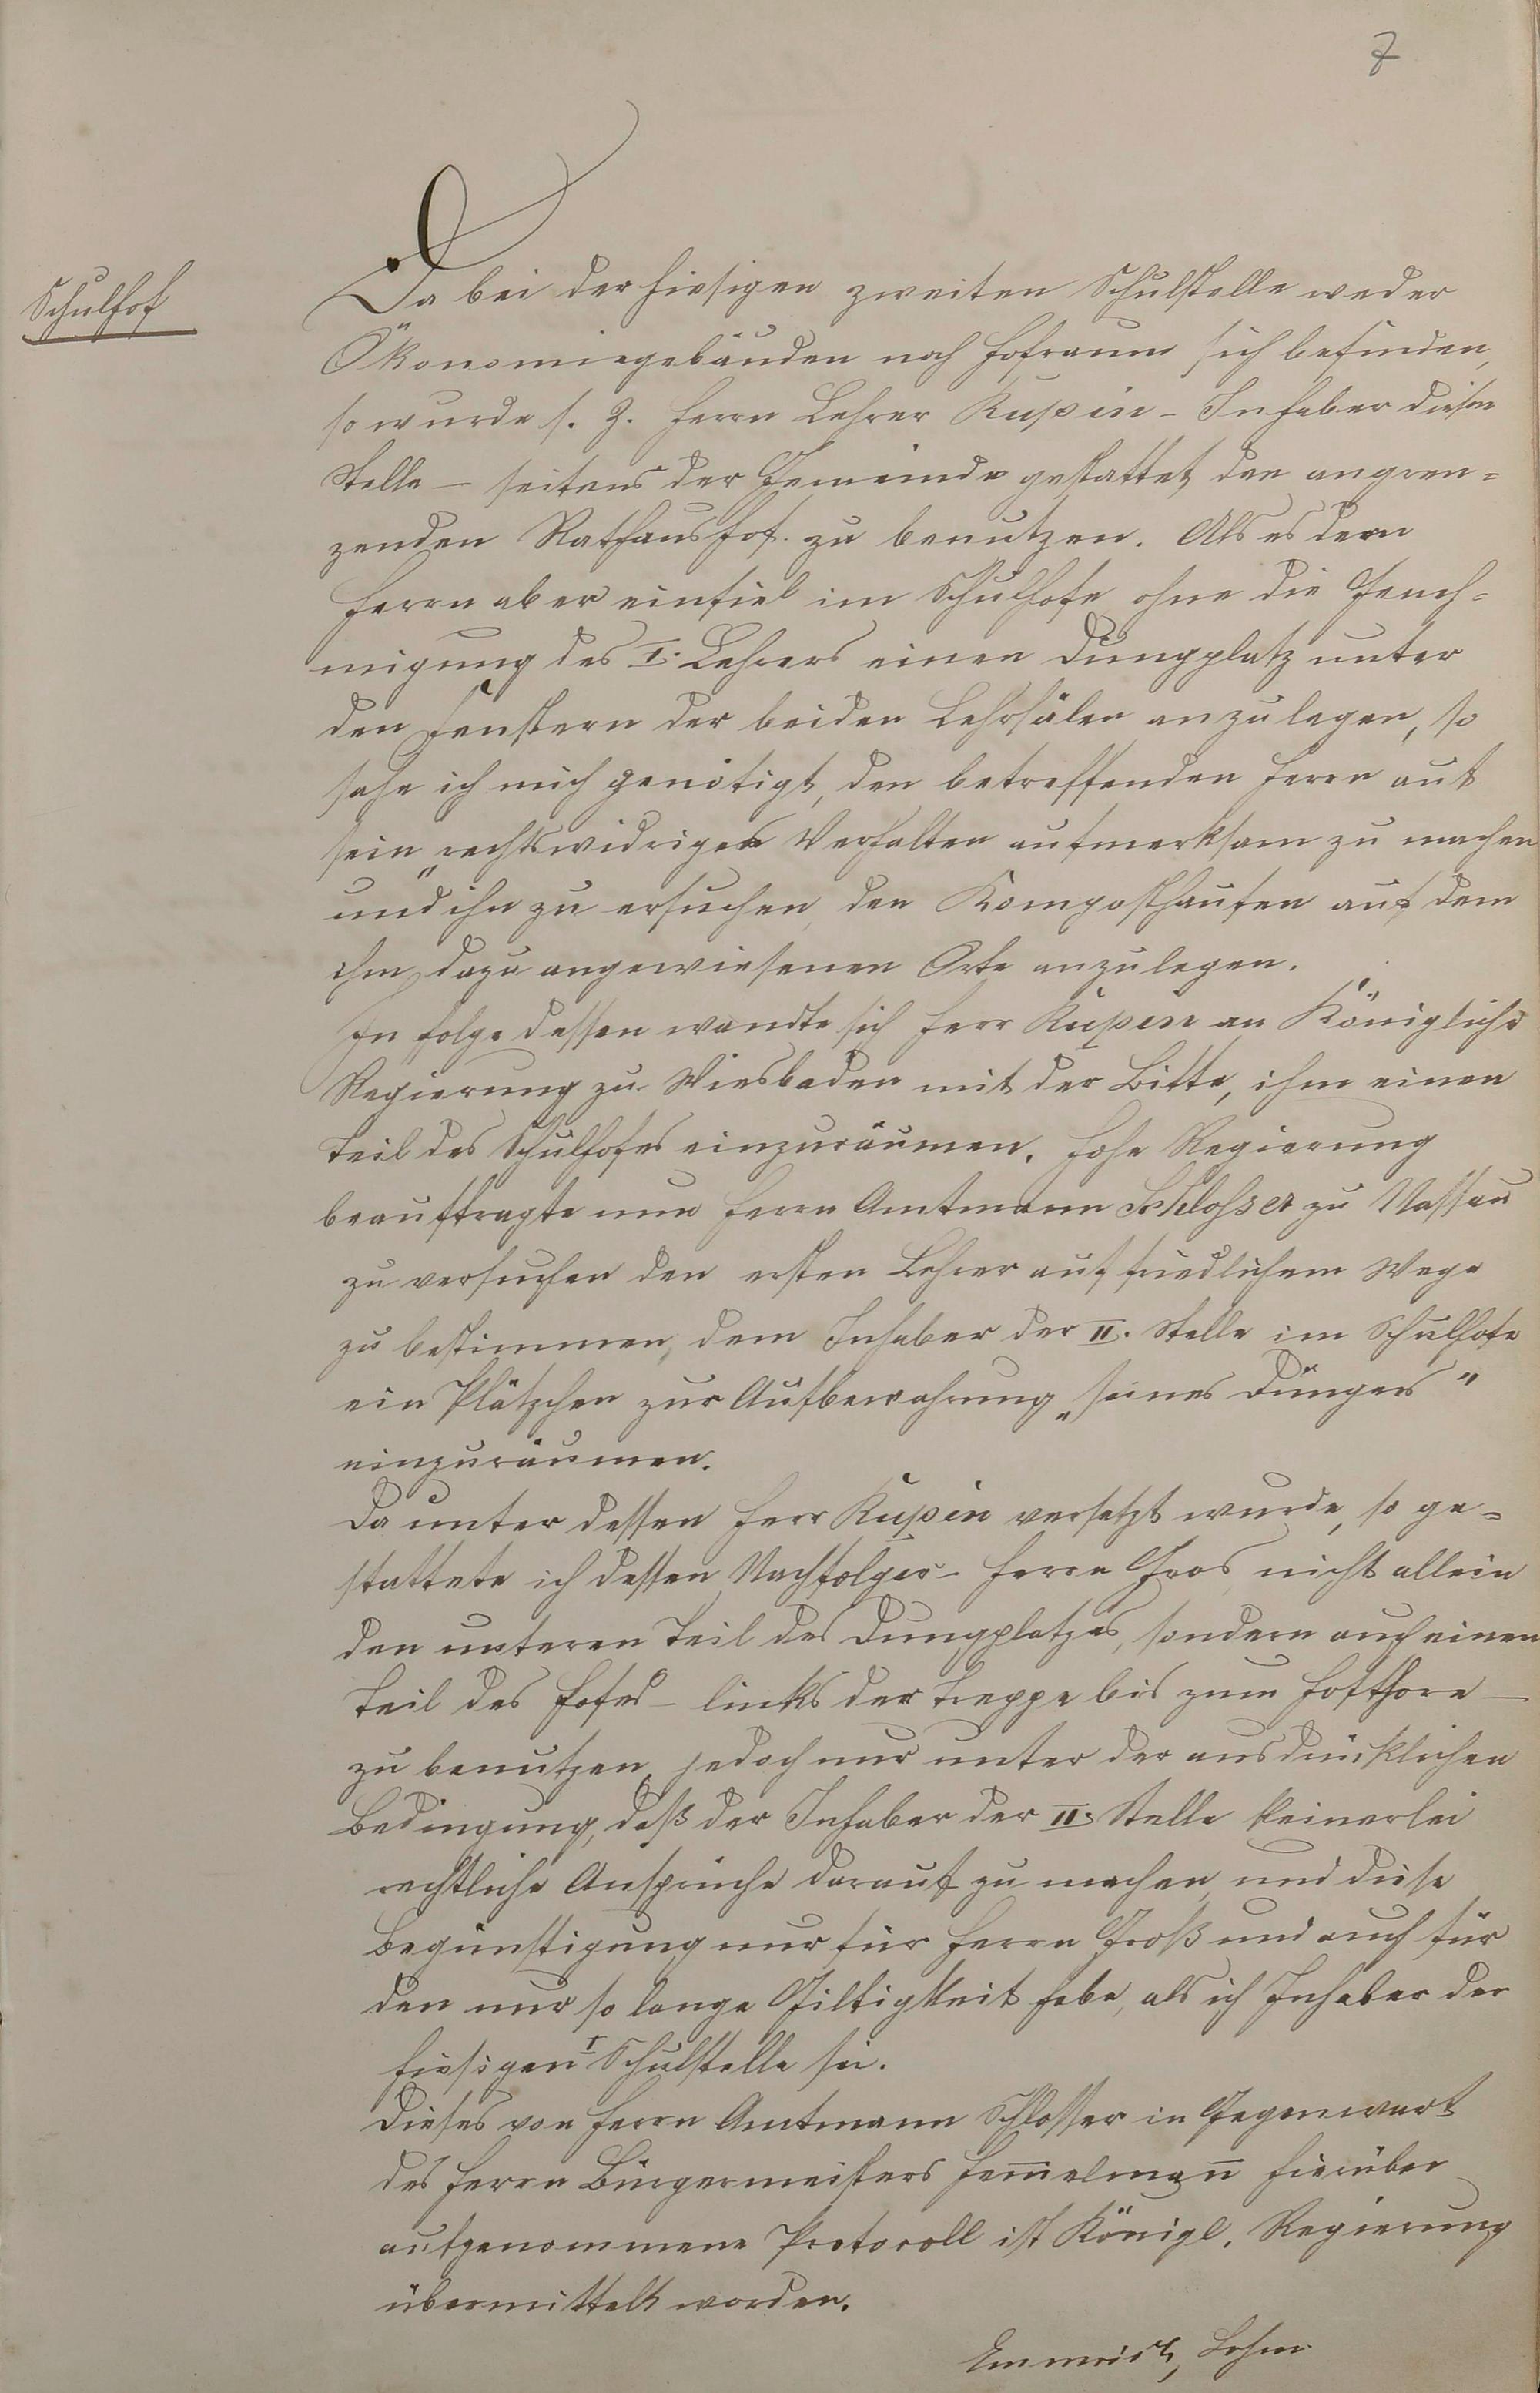 7
Schulhof
Da bei der hiesigen zweiten Schulstelle weder
Ökonomiegebäuden noch Hofraum sich befinden,
so wurde s. Z. Herrn Lehrer Kupin - Inhaber dieser
Stelle - seitens der Gemeinde gestattet, den angren=
zenden Rathaushof zu benutzen. Als es dem
Herrn aber einfiel im Schulhofe ohne die Geneh=
migung des I. Lehrers einen Dungplatz unter
den Fenstern der beiden Lehrsälen anzulegen, so
sahe ich mich genötigt, den betreffenden Herrn auf
sein „rechtswidriges Verhalten aufmerksam zu machen
und ihn zu ersuchen, den Komposthaufen auf dem
ihm dazu angewiesenen Orte anzulegen.
In folge dessen wandte sich Herr Kupin an Königliche
Regierung zu Wiesbaden mit der Bitte, ihm einen
Teil des Schulhofes einzuräumen. Hohe Regierung
beauftragte nun Herrn Amtmann Schlosser zu Nassau
zu versuchen den ersten Lehrer auf friedlichem Wege
zu bestimmen, dem Inhaber der II. Stelle im Schulhofe
ein Plätzchen zur Aufbewahrung „seines Düngers"
einzuräumen.
Da unter dessen Herr Kupin versetzt wurde, so ge=
stattete ich dessen Nachfolger - Herrn Groos, nicht allein
den unteren Teil des Dungplatzes, sondern auch einen
Teil des Hofes - links der Treppe bis zum Hofthore -
zu benutzen, jedoch nur unter der ausdrücklichen
Bedingung, daß der Inhaber der II. Stelle keinerlei
rechtliche Ansprüche darauf zu machen, und diese
Begünstigung nur für Herrn Groß und auch für
den nur so lange Giltigkeit habe, als ich Inhaber der
hiesigen I Schulstelle sei.
Dieses von Herrn Amtmann Schlosser in Gegenwart
des Herrn Bürgermeisters Hem̅elman̅ hierüber
aufgenommene Protocoll ist Königl. Regierung
übermittelt worden.
Emmrich, Lehrer